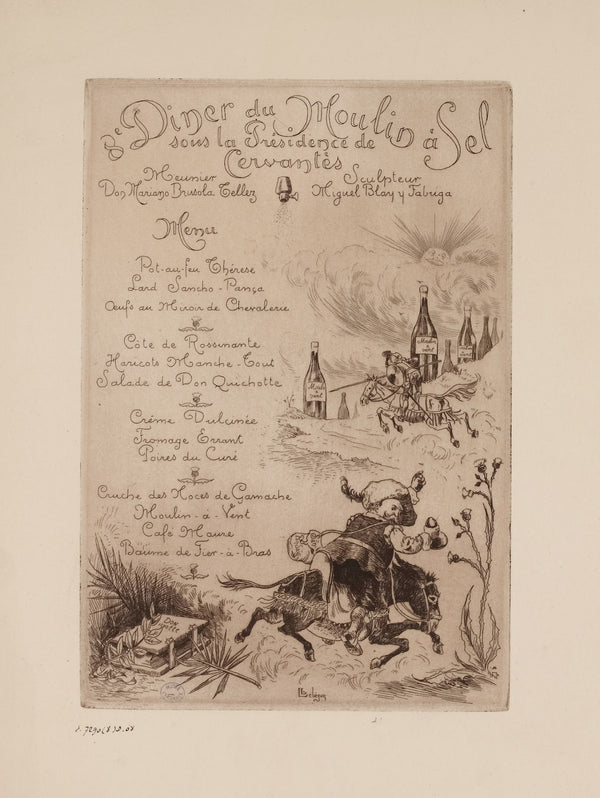 8e Diner du Moulin à Sel
sous la Présidence de
Cervantès
Meunier
Don Mariano Brusola Tellez
Sculpteur
Miguel Blay y Fabriga
Menu
Pot-au-feu Thérese
Lard Sancho-Pança
Œufs au Miroir de Chevalerie
Côte de Rossinante
Haricots Manche-Tout
Salade de Don Quichotte
Crème Dulcinée
Fromage Errant
Poires du Curé
Cruche des Noces de Gamache
Moulin-à-Vent
Café Maure
Baume de Fier-à-Bras
Moulin
à
vent
Moulin
à
vent
DON